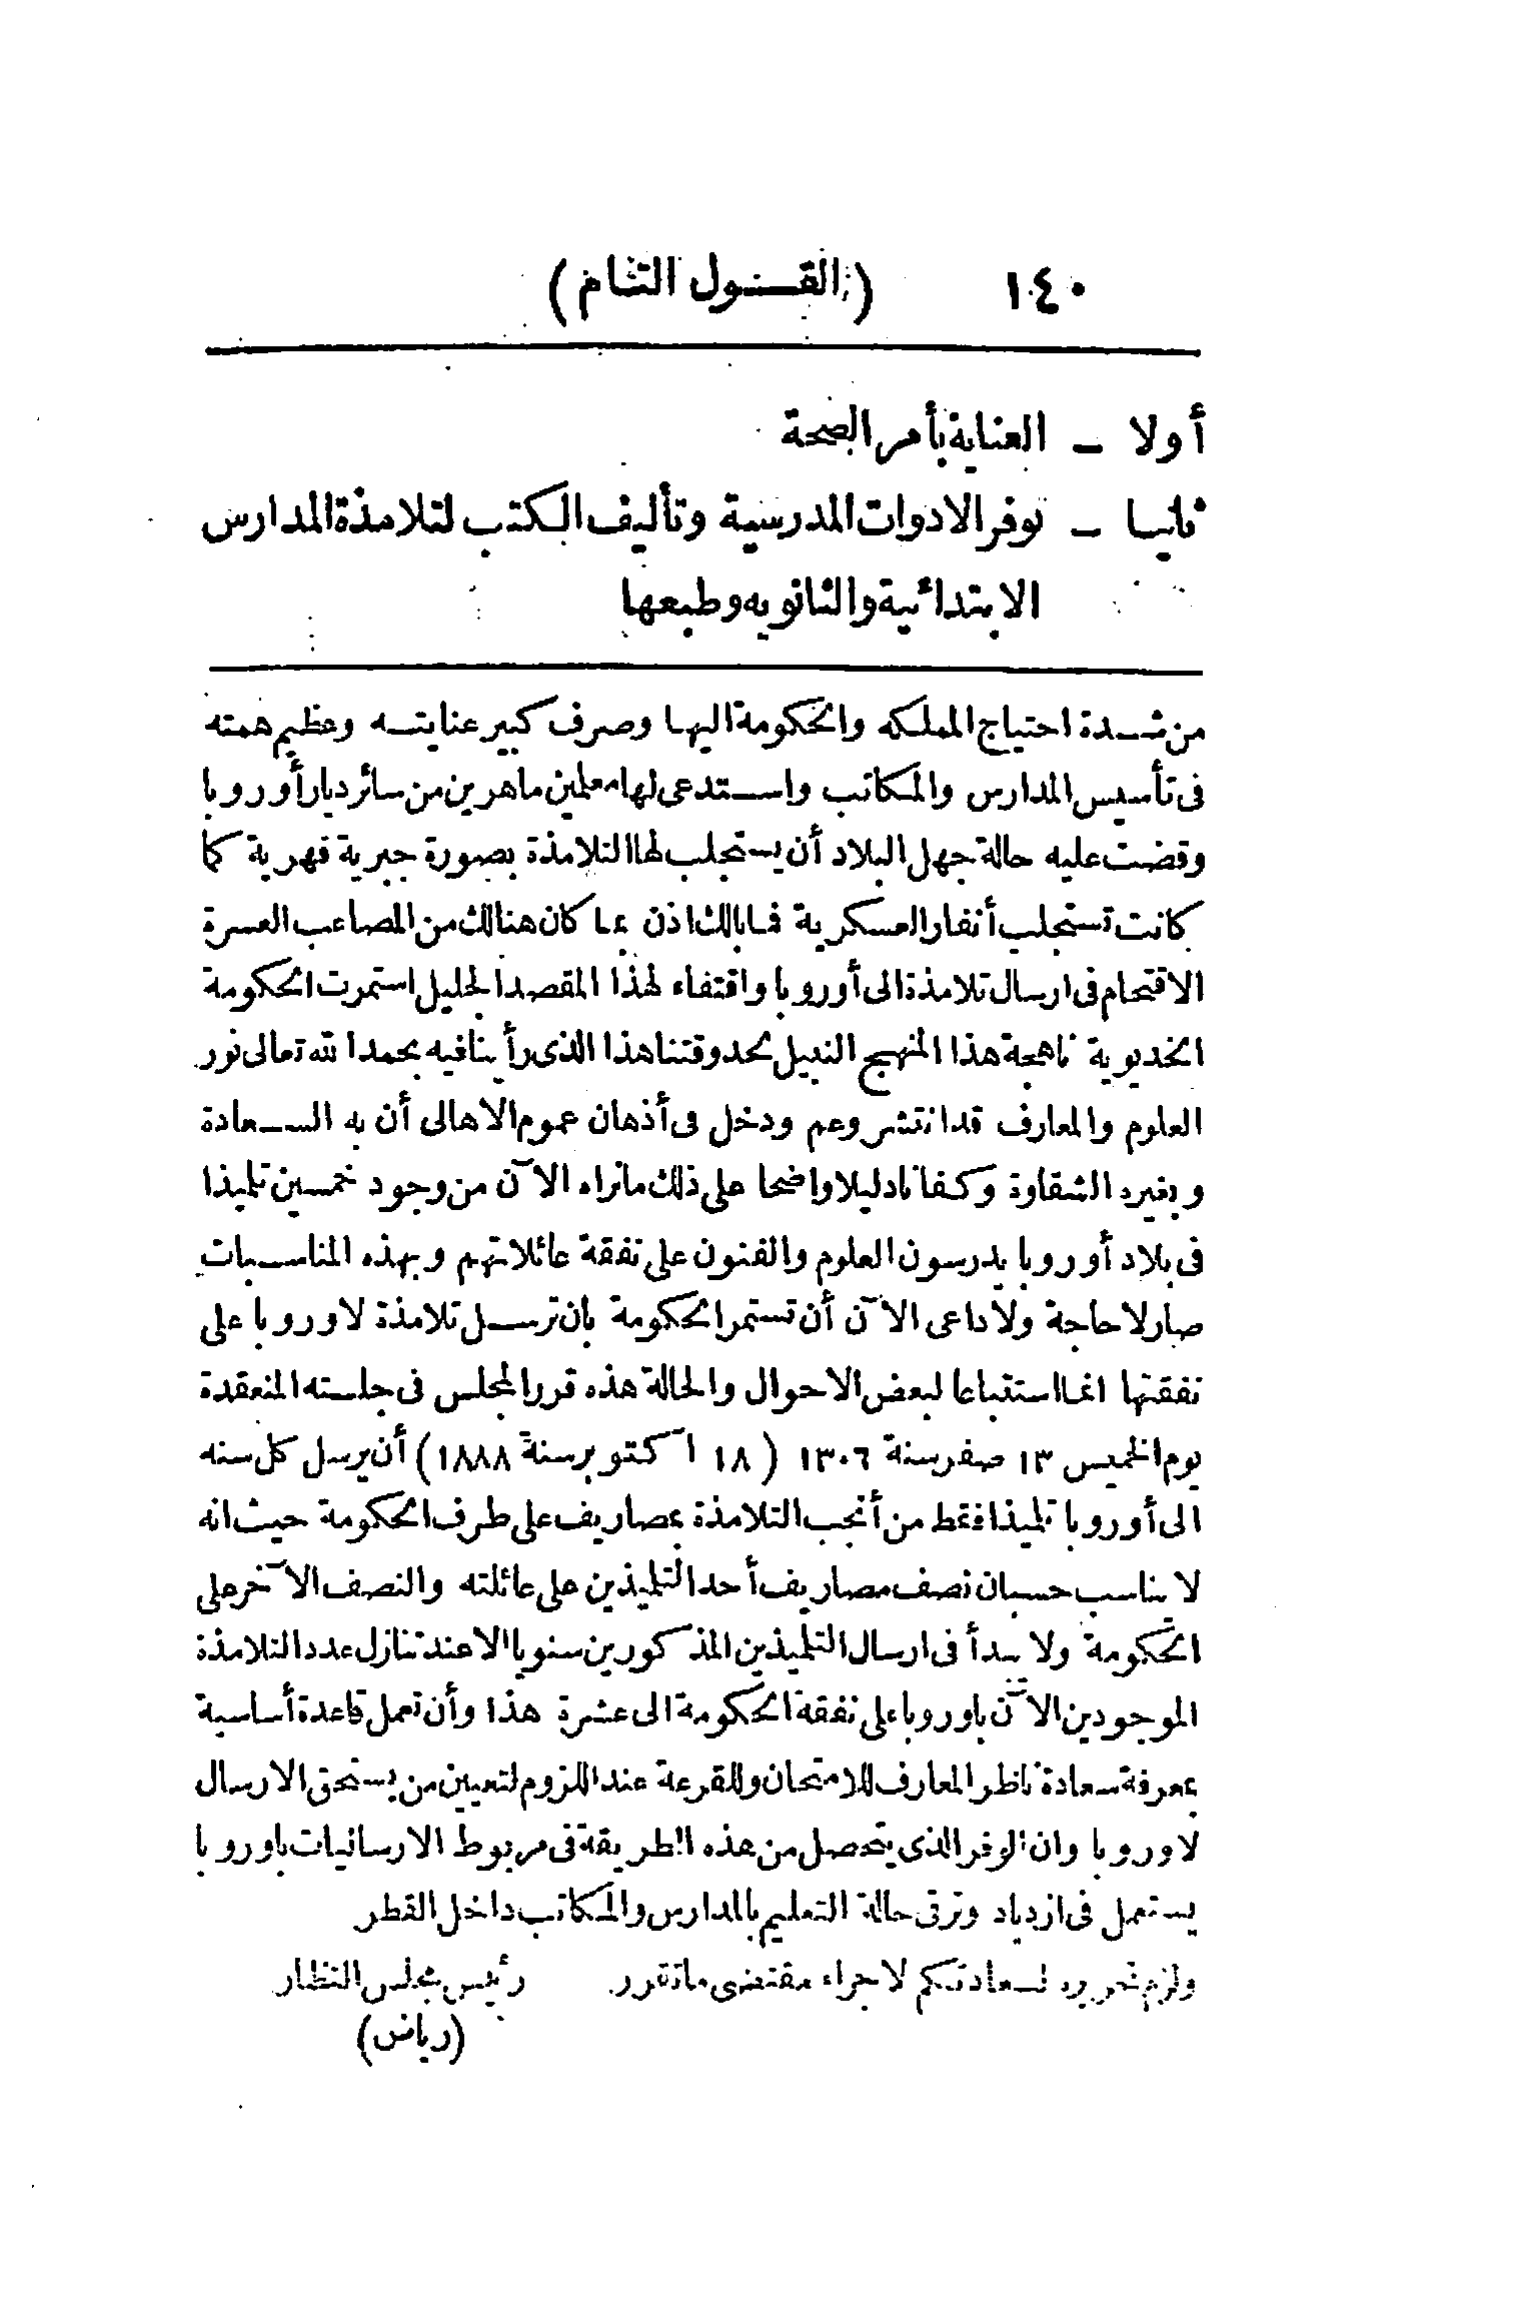 ١٤٠ (القـــول التـام)
أولا - العناية بأمر الصحة
ثانيا - توفر الادوات المدرسية وتأليف الكتب لتلامذة المدارس
الابتدائية والثانويه وطبعها
من شــدة احتياج المملكه والحكومة اليها وصرف كبير عنايتــه وعظيم همته
فى تأسيس المدارس والمكاتب واســتدعى لها معلمين ماهرين من سائر ديار أوروبا
وقضت عليه حالة جهل البلاد أن يستجلب لها التلامذة بصورة جبرية قهرية كما
كانت تستجلب أنفار العسكرية فما بالك اذن بما كان هنالك من المصاعب العسرة
الاقتحام فى ارسال تلامذة الى أوروبا واقتفاء لهذا المقصد الجليل استمرت الحكومة
الخديوية ناهجة هذا المنهج النبيل لحد وقتنا هذا الذى رأينا فيه بحمد الله تعالى نور
العلوم والمعارف قد انتشر وعم ودخل فى أذهان عموم الاهالى أن به الســعادة
وبغيره الشقاوة وكفانا دليلا واضحا على ذلك مانراه الآن من وجود خمسين تلميذا
فى بلاد أوروبا يدرسون العلوم والفنون على نفقة عائلاتهم وبهذه المناســبات
صار لا حاجة ولا داعى الآن أن تستمر الحكومة بان ترســل تلامذة لاوروبا على
نفقتها انما استتباعا لبعض الاحوال والحالة هذه قرر المجلس فى جلسته المنعقدة
يوم الخميس ١٣ صفر سنة ١٣٠٦ (١٨ اكتوبر سنة ١٨٨٨) أن يرسل كل سنه
الى أوروبا تلميذا فقط من أنجب التلامذة بمصاريف على طرف الحكومة حيث انه
لا يناسب حسبان نصف مصاريف أحد التلميذين على عائلته والنصف الآخر على
الحكومة ولا يبدأ فى ارسال التلميذين المذكورين سنويا الا عند تنازل عدد التلامذة
الموجودين الآن باوروبا على نفقة الحكومة الى عشرة هذا وأن تعمل قاعدة أساسية
بمعرفة سعادة ناظر المعارف للامتحان وللقرعة عند اللزوم لتعيين من يستحق الارسال
لاوروبا وان الوفر الذى يتحصل من هذه الطريقة فى مربوط الارساليات باوروبا
يستعمل فى ازدياد وترقى حالة التعليم بالمدارس والمكاتب داخل القطر
ولزم تحريره لسعادتكم لاجراء مقتضى ماتقرر رئيس مجلس النظار
(رياض)